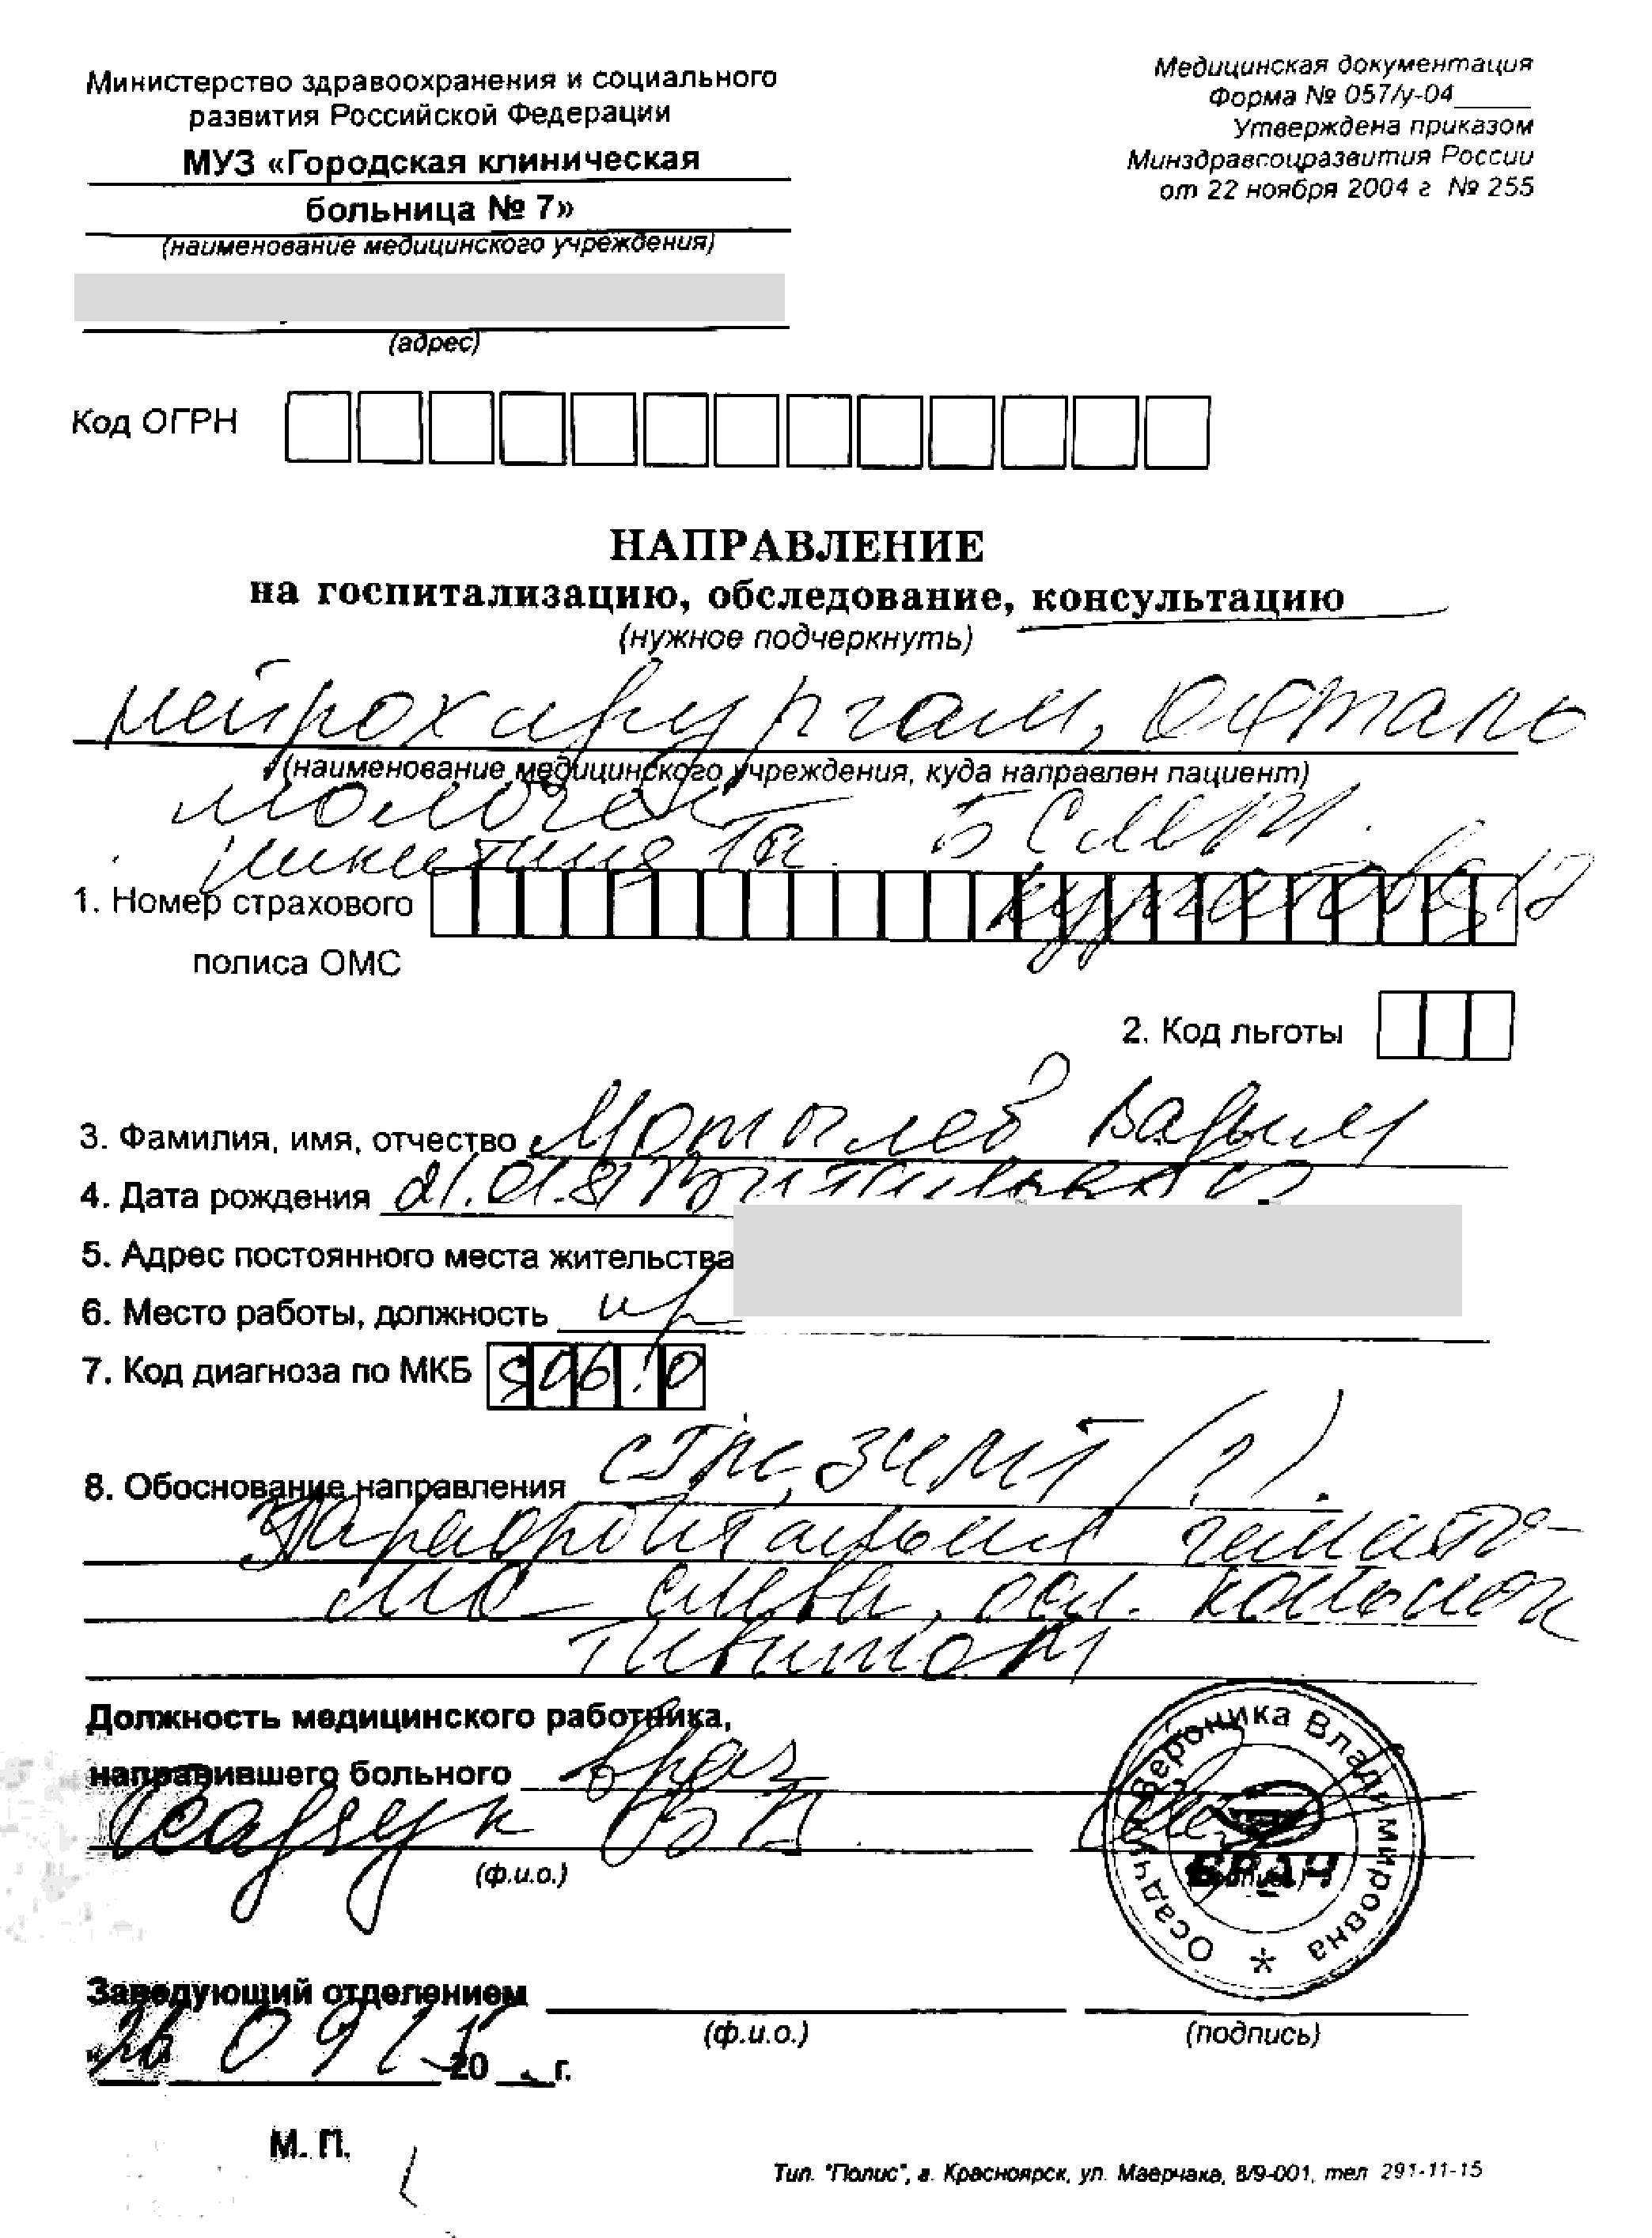 Министерство здравоохранения и социального
развития Российской Федерации
МУЗ «Городская клиническая
больница № 7»
(наименование медицинского учреждения)
(адрес)
Медицинская документация
Форма № 057/у-04
Утверждена приказом
Минздравсоцразвития России
от 22 ноября 2004 г № 255
Код ОГРН
НАПРАВЛЕНИЕ
на госпитализацию, обследование, консультацию
(нужное подчеркнуть)
нейрохирургам, офталь
(наименование медицинского учреждения, куда направлен пациент)
мологам
БСМП
1. Номер страхового
Курчатова 17
полиса ОМС
2. Код льготы
3. Фамилия, имя, отчество Мотылев Вадим
4. Дата рождения 21.01.81 Витальевич
5. Адрес постоянного места жительства
6. Место работы, должность
7. Код диагноза по МКБ S06.0
8. Обоснование направления ЗЧМТ (?).
Параорбитальная гемато-
ма слева, конъюнк
Должность медицинского работника,
направившего больного врач
Осадчук ВВ
(ф.и.о.)
Осадчук Вероника Владимировна
ВРАЧ
Заведующий отделением
(ф.и.о.)
(подпись)
26 09 15 20 г.
М. П.
Тип. "Полис", г. Красноярск, ул. Маерчака, 8/9-001, тел 291-11-15